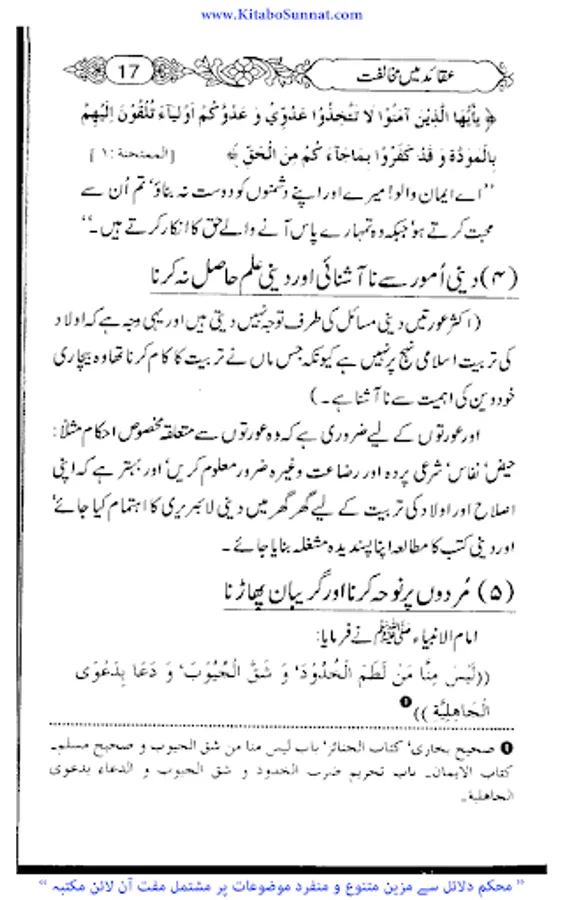 www.KitaboSunnat.com
17 عقائد میں مخالفت
﴿ یٰۤاَیُّهَا الَّذِیْنَ آمَنُوْا لَا تَتَّخِذُوْا عَدُوِّیْ وَ عَدُوَّكُمْ اَوْلِیَآءَ تُلْقُوْنَ اِلَیْهِمْ
بِالْمَوَدَّةِ وَ قَدْ كَفَرُوْا بِمَا جَآءَ كُمْ مِنَ الْحَقِّ ﴾ [الممتحنة:۱]
”اے ایمان والو! میرے اور اپنے دشمنوں کو دوست نہ بناؤ‘ تم اُن سے
محبت کرتے ہو‘ جبکہ وہ تمہارے پاس آنے والے حق کا انکار کرتے ہیں۔“
(۴) دینی اُمور سے نا آشنائی اور دینی علم حاصل نہ کرنا
(اکثر عورتیں دینی مسائل کی طرف توجہ نہیں دیتی ہیں اور یہی وجہ ہے کہ اولاد
کی تربیت اسلامی نہج پر نہیں ہے کیونکہ جس ماں نے تربیت کا کام کرنا تھا وہ بیچاری
خود دین کی اہمیت سے نا آشنا ہے۔)
اور عورتوں کے لیے ضروری ہے کہ وہ عورتوں سے متعلقہ مخصوص احکام مثلاً:
حیض‘ نفاس‘ شرعی پردہ اور رضاعت وغیرہ ضرور معلوم کریں‘ اور بہتر ہے کہ اپنی
اصلاح اور اولاد کی تربیت کے لیے گھر گھر میں دینی لائبریری کا اہتمام کیا جائے‘
اور دینی کتب کا مطالعہ اپنا پسندیدہ مشغلہ بنایا جائے۔
(۵) مُردوں پر نوحہ کرنا اور گریبان پھاڑنا
امام الانبیاء ﷺ نے فرمایا:
((لَیْسَ مِنَّا مَنْ لَطَمَ الْخُدُوْدَ‘ وَ شَقَّ الْجُیُوْبَ‘ وَ دَعَا بِدَعْوَی
الْجَاهِلِیَّةِ)) ❶
❶ صحیح بخاری‘ کتاب الجنائز‘ باب لیس منا من شق الجیوب و صحیح مسلم۔
کتاب الایمان۔ باب تحریم ضرب الخدود و شق الجیوب و الدعاء بدعوی
الجاهلیة۔
”محکم دلائل سے مزین متنوع و منفرد موضوعات پر مشتمل مفت آن لائن مکتبہ“